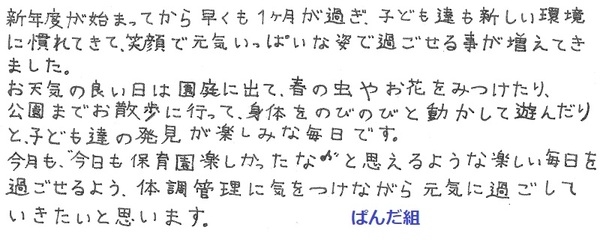 新年度が始まってから早くも1ヶ月が過ぎ、子ども達も新しい環境
に慣れてきて、笑顔で元気いっぱいな姿で過ごせる事が増えてき
ました。
お天気の良い日は園庭に出て、春の虫やお花をみつけたり、
公園までお散歩に行って、身体をのびのびと動かして遊んだり
と、子ども達の発見が楽しみな毎日です。
今月も、“今日も保育園楽しかったな”と思えるような楽しい毎日を
過ごせるよう、体調管理に気をつけながら元気に過ごして
いきたいと思います。 ぱんだ組